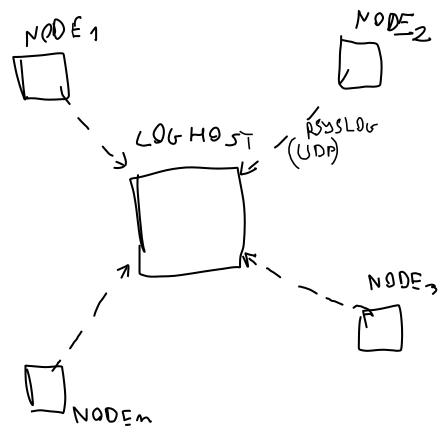 NODE1
NODE_2
LOGHOST
RSYSLOG
(UDP)
NODE3
NODEn